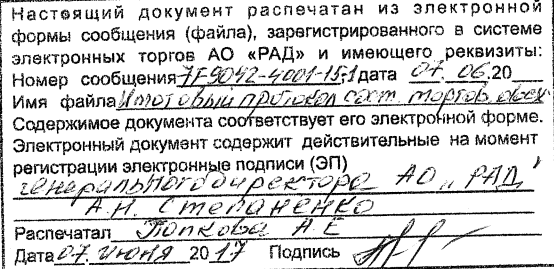 Настоящий документ распечатан из электронной
формы сообщения (файла), зарегистрированного в системе
электронных торгов АО «РАД» и имеющего реквизиты:
Номер сообщения 7F9042-4001-15-1 дата 07. 06. 20
Имя файла Итоговый протокол сост. торгов
Содержимое документа соответствует его электронной форме.
Электронный документ содержит действительные на момент
регистрации электронные подписи (ЭП)
генерального директора АО „РАД"
А.Н. Степаненко
Распечатал Попкова А.Е
Дата 07. июня 2017 Подпись